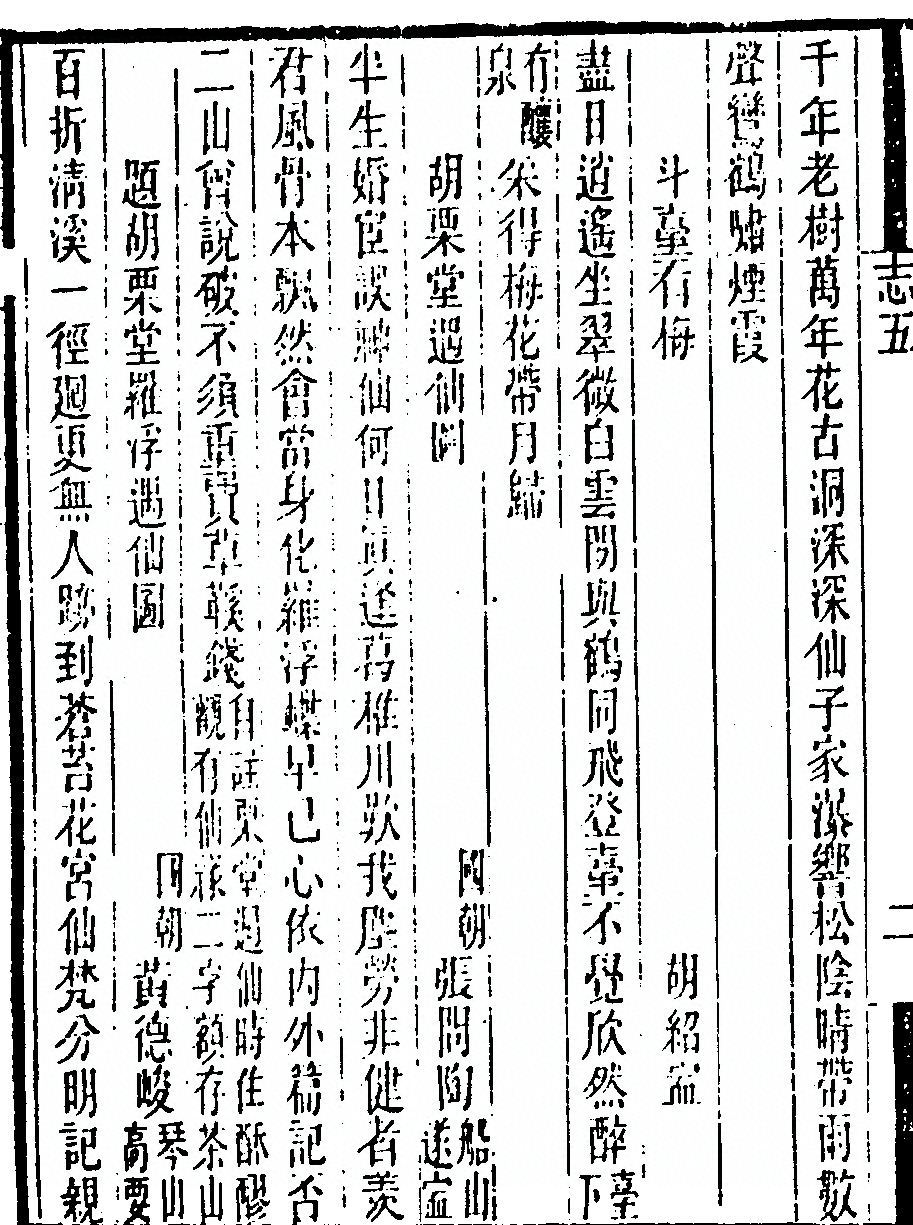 志五
二
千年老樹萬年花古洞深深仙子家瀑響松陰晴帶雨數
聲鸞鶴嘯煙霞
斗臺有梅
胡紹寧
盡日逍遙坐翠微白雲閒與鶴同飛登臺不覺欣然醉臺下
有釀泉采得梅花帶月歸
胡栗堂遇仙圖
國朝張問陶船山遂寧
半生婚宦談神仙何日眞逢葛稚川歎我塵勞非健者羨
君風骨本飄然會當身化羅浮蝶早已心依內外篇記否
二山曾說破不須重買草鞋錢自註栗堂遇仙時住酥醪觀有仙蹤二字額存茶山
題胡栗堂羅浮遇仙圖
國朝黃德峻琴山高要
百折淸溪一徑廻更無人跡到蒼苔花宮仙梵分明記親